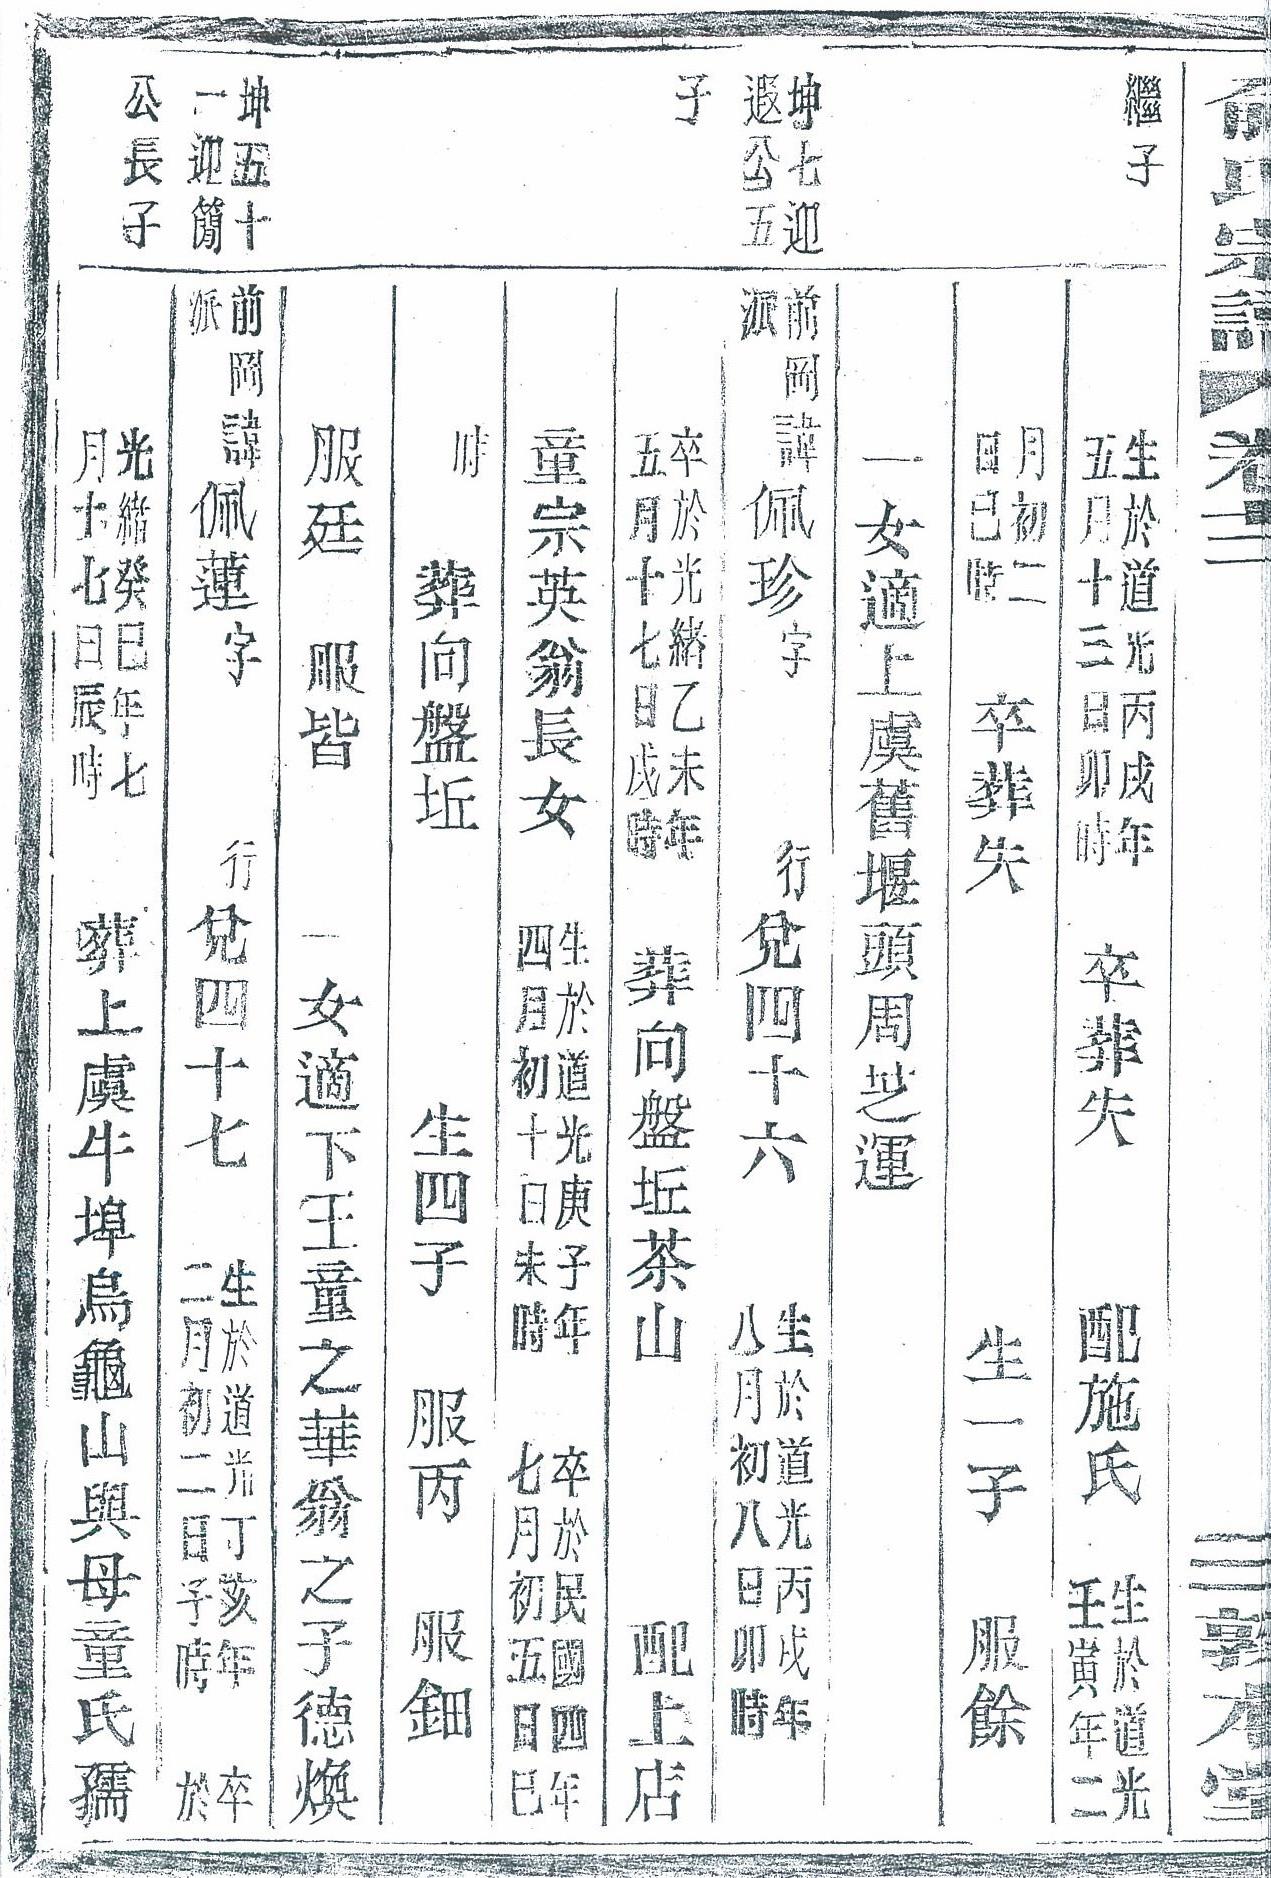 俞氏宗譜 卷三 三 敦本堂
繼子
生於道光丙戌年五月十三日卯時 卒葬失 配施氏 生於道光壬寅年二
月初二日巳時 卒葬失 生一子 服餘
一女適上虞舊堰頭周芝運
坤七迎遐公五
前岡派 諱佩珍字 行兌四十六 生於道光丙戌年八月初八日卯時
子
卒於光緒乙未年五月十七日戌時 葬向盤坵茶山 配上店
童宗英翁長女 生於道光庚子年四月初十日未時 卒於民國四年七月初五日巳
時 葬向盤坵 生四子 服丙 服鈿
服廷 服皆 一女適下王童之華翁之子德煥
坤五十一迎簡
前岡派 諱佩蓮字 行兌四十七 生於道光丁亥年二月初二日子時 卒於
公長子
光緒癸巳年七月十七日辰時 葬上虞牛埠烏龜山與母童氏孺